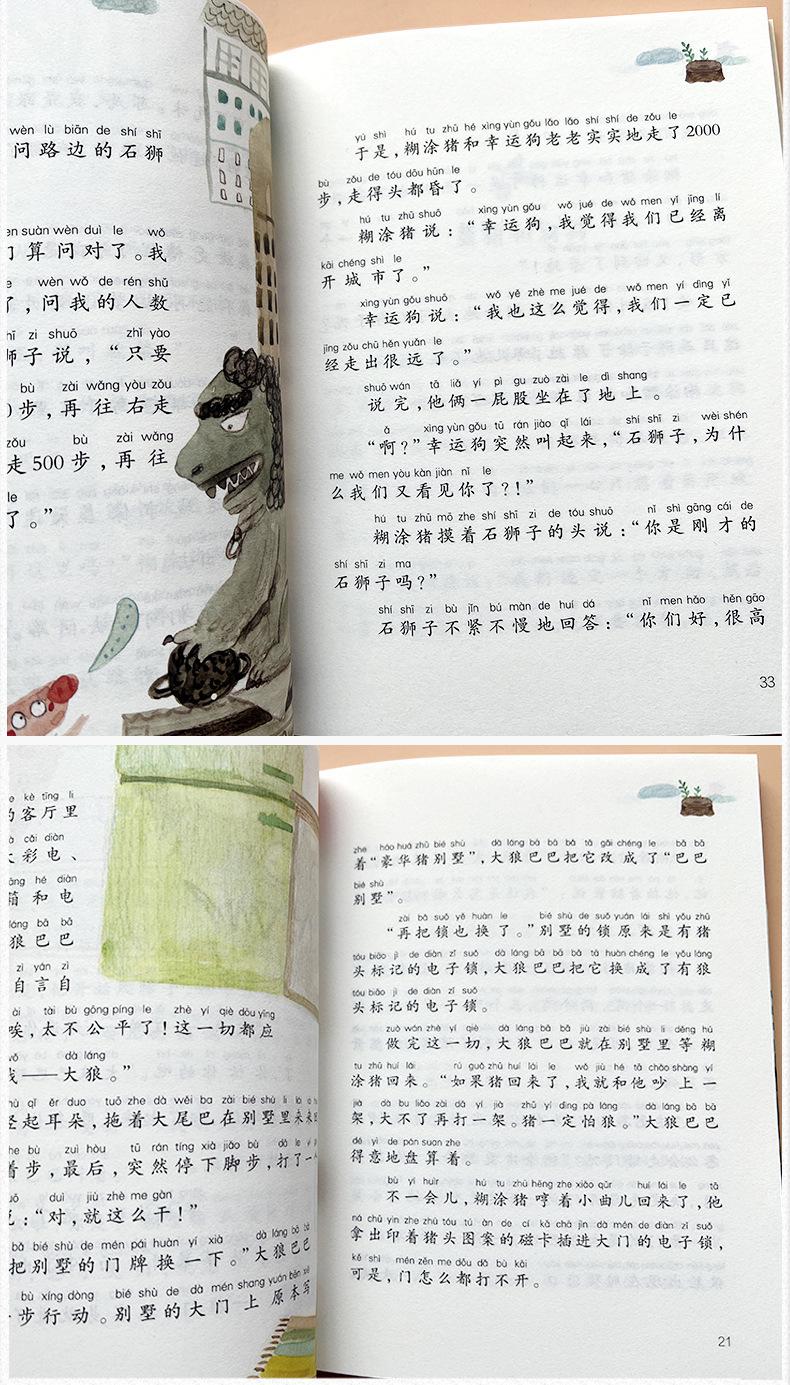 wèn lù biān de shí shī
问路边的石狮
suàn wèn duì le wǒ
算问对了。我
wèn wǒ de rén shǔ
了，问我的人数
shī zi shuō zhǐ yào
狮子说，“只要
bù zài wǎng yòu zǒu
0步，再往右走
zǒu bù zài wǎng
走500步，再往
le
了。”
yú shì hú tu zhū hé xìng yùn gǒu lǎo lǎo shí shí de zǒu le
于是，糊涂猪和幸运狗老老实实地走了2000
bù zǒu de tóu dōu hūn le
步，走得头都昏了。
hú tu zhū shuō xìng yùn gǒu wǒ jué de wǒ men yǐ jīng lí
糊涂猪说：“幸运狗，我觉得我们已经离
kāi chéng shì le
开城市了。”
xìng yùn gǒu shuō wǒ yě zhè me jué de wǒ men yí dìng yǐ
幸运狗说：“我也这么觉得，我们一定已
jīng zǒu chū hěn yuǎn le
经走出很远了。”
shuō wán tā liǎ yí pì gu zuò zài le dì shang
说完，他俩一屁股坐在了地上。
á xìng yùn gǒu tū rán jiào qǐ lái shí shī zi wèi shén
“啊？”幸运狗突然叫起来，“石狮子，为什
me wǒ men yòu kàn jiàn nǐ le
么我们又看见你了？！”
hú tu zhū mō zhe shí shī zi de tóu shuō nǐ shì gāng cái de
糊涂猪摸着石狮子的头说：“你是刚才的
shí shī zi ma
石狮子吗？”
shí shī zi bù jǐn bú màn de huí dá nǐ men hǎo hěn gāo
石狮子不紧不慢地回答：“你们好，很高
33
kè tīng li
的客厅里
cǎi diàn
彩电、
hé diàn
箱和电
láng bā bā
狼巴巴
zì yán zì
自言自
ài tài bù gōng píng le zhè yí qiè dōu yīng
唉，太不公平了！这一切都应
wǒ dà láng
我——大狼。”
qǐ ěr duo tuō zhe dà wěi ba zài bié shù li lái
竖起耳朵，拖着大尾巴在别墅里来来回
zhe bù zuì hòu tū rán tíng xià jiǎo bù dǎ le yī
着步，最后，突然停下脚步，打了一
duì jiù zhè me gàn
：“对，就这么干！”
bǎ bié shù de mén pái huàn yí xià dà láng bā bā
把别墅的门牌换一下。”大狼巴巴
bù xíng dòng bié shù de dà mén shang yuán běn xiě
步行动。别墅的大门上原本写
zhe háo huá zhū bié shù dà láng bā bā bǎ tā gǎi chéng le bā bā
着“豪华猪别墅”，大狼巴巴把它改成了“巴巴
bié shù
别墅”。
zài bǎ suǒ yě huàn le bié shù de suǒ yuán lái shì yǒu zhū
“再把锁也换了。”别墅的锁原来是有猪
tóu biāo jì de diàn zǐ suǒ dà láng bā bā bǎ tā huàn chéng le yǒu láng
头标记的电子锁，大狼巴巴把它换成了有狼
tóu biāo jì de diàn zǐ suǒ
头标记的电子锁。
zuò wán zhè yí qiè dà láng bā bā jiù zài bié shù li děng hú
做完这一切，大狼巴巴就在别墅里等糊
tu zhū huí lái rú guǒ zhū huí lái le wǒ jiù hé tā chǎo shàng yí
涂猪回来。“如果猪回来了，我就和他吵上一
jià dà bu liǎo zài dǎ yí jià zhū yí dìng pà láng dà láng bā bā
架，大不了再打一架。猪一定怕狼。”大狼巴巴
dé yì de pán suan zhe
得意地盘算着。
bù yí huìr hú tu zhū hēng zhe xiǎo qǔr huí lái le tā
不一会儿，糊涂猪哼着小曲儿回来了，他
ná chū yìn zhe zhū tóu tú àn de cí kǎ chā jìn dà mén de diàn zǐ suǒ
拿出印着猪头图案的磁卡插进大门的电子锁，
kě shì mén zěn me dōu dǎ bù kāi
可是，门怎么都打不开。
21